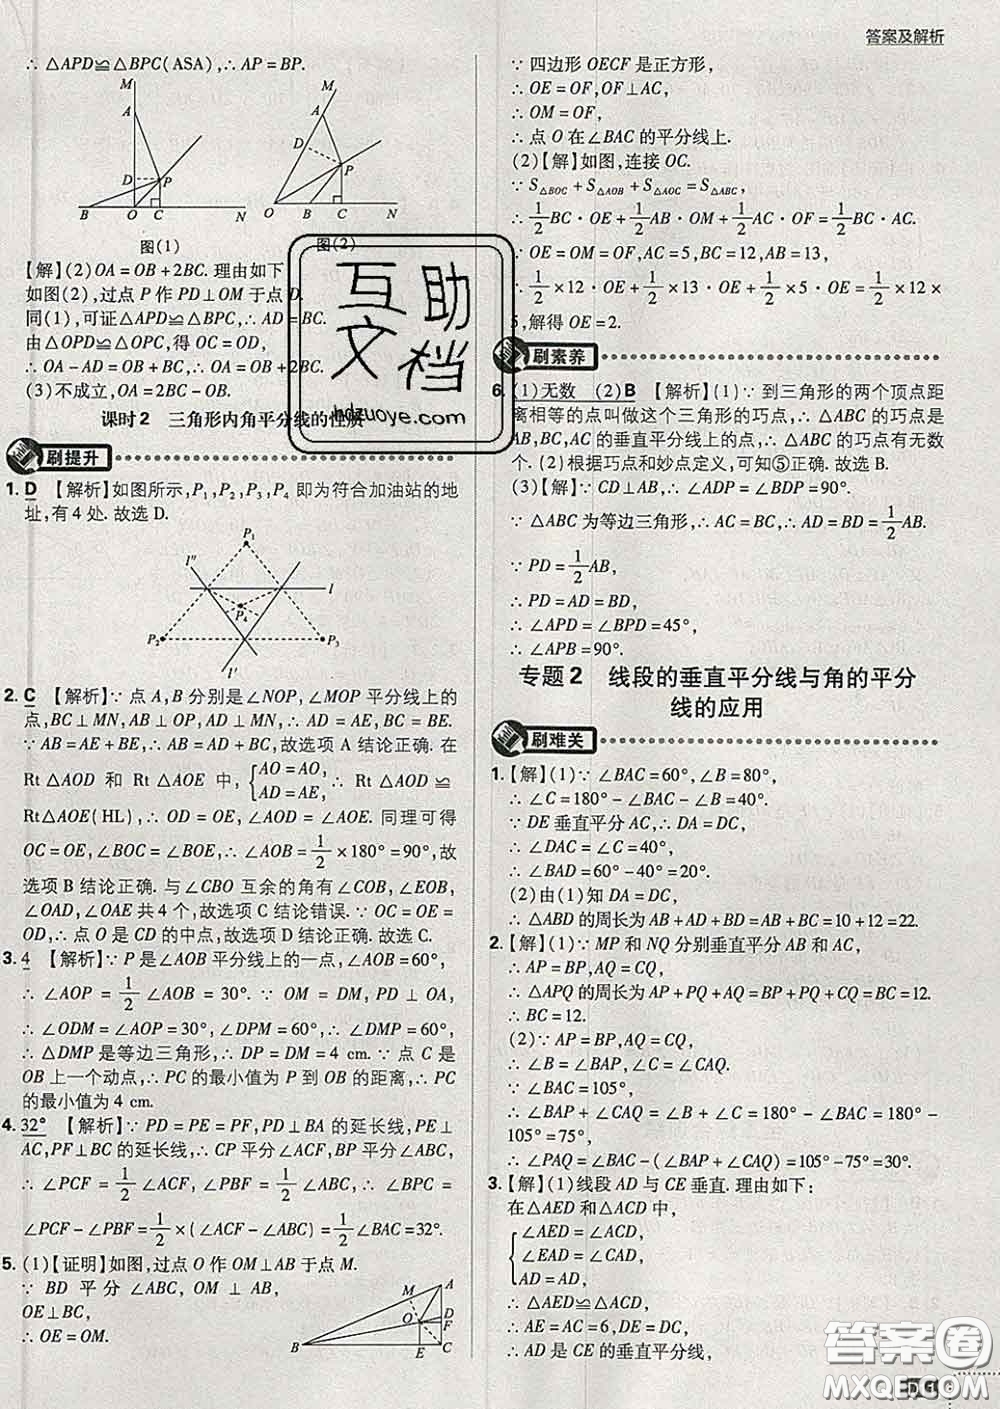 答案及解析
∴ △APD≌△BPC(ASA),∴ AP=BP.
M
A
D
P
B
O
C
N
图(1)
M
A
D
P
O
B
C
N
图(2)
【解】(2)OA=OB+2BC. 理由如下
如图(2),过点 P 作 PD⊥OM 于点 D.
同(1),可证△APD≌△BPC,∴ AD=BC.
由△OPD≌△OPC,得 OC=OD,
∴ OA-AD=OB+BC,∴ OA=OB+2BC.
(3)不成立,OA=2BC-OB.
课时2 三角形内角平分线的性质
刷提升
1. D 【解析】如图所示,P₁,P₂,P₃,P₄ 即为符合加油站的地
址,有4处. 故选 D.
P₁
l″
l
P₄
P₂
P₃
l′
2. C 【解析】∵ 点 A,B 分别是∠NOP,∠MOP 平分线上的
点,BC⊥MN,AB⊥OP,AD⊥MN,∴ AD=AE,BC=BE.
∵ AB=AE+BE,∴ AB=AD+BC,故选项 A 结论正确. 在
Rt△AOD 和 Rt△AOE 中,{AO=AO, AD=AE,∴ Rt△AOD≌
Rt△AOE(HL),∴ OD=OE,∠AOD=∠AOE. 同理可得
OC=OE,∠BOC=∠BOE,∴ ∠AOB=1/2×180°=90°,故
选项 B 结论正确. 与∠CBO 互余的角有∠COB,∠EOB,
∠OAD,∠OAE 共4个,故选项 C 结论错误. ∵ OC=OE=
OD,∴ 点 O 是 CD 的中点,故选项 D 结论正确. 故选 C.
3. 4 【解析】∵ P 是∠AOB 平分线上的一点,∠AOB=60°,
∴ ∠AOP=1/2∠AOB=30°. ∵ OM=DM,PD⊥OA,
∴ ∠ODM=∠AOP=30°,∠DPM=60°,∴ ∠DMP=60°,
∴ △DMP 是等边三角形,∴ DP=DM=4 cm. ∵ 点 C 是
OB 上一个动点,∴ PC 的最小值为 P 到 OB 的距离,∴ PC
的最小值为 4 cm.
4. 32° 【解析】∵ PD=PE=PF,PD⊥BA 的延长线,PE⊥
AC,PF⊥BC 的延长线,∴ CP 平分∠ACF,BP 平分∠ABC,
∴ ∠PCF=1/2∠ACF,∠PBF=1/2∠ABC,∴ ∠BPC=
∠PCF-∠PBF=1/2×(∠ACF-∠ABC)=1/2∠BAC=32°.
5. (1)【证明】如图,过点 O 作 OM⊥AB 于点 M.
∵ BD 平分∠ABC, OM⊥AB,
OE⊥BC,
∴ OE=OM.
A
M
D
O
F
B
E
C
∵ 四边形 OECF 是正方形,
∴ OE=OF,OF⊥AC,
∴ OM=OF,
∴ 点 O 在∠BAC 的平分线上.
(2)【解】如图,连接 OC.
∵ S△BOC+S△AOB+S△AOC=S△ABC,
∴ 1/2BC·OE+1/2AB·OM+1/2AC·OF=1/2BC·AC.
∴ OE=OM=OF,AC=5,BC=12,AB=13,
∴ 1/2×12·OE+1/2×13·OE+1/2×5·OE=1/2×12×
5,解得 OE=2.
刷素养
6. (1)无数 (2)B 【解析】(1)∵ 到三角形的两个顶点距
离相等的点叫做这个三角形的巧点,∴ △ABC 的巧点是
AB,BC,AC 的垂直平分线上的点,∴ △ABC 的巧点有无数
个. (2)根据巧点和妙点定义,可知⑤正确. 故选 B.
(3)【解】∵ CD⊥AB,∴ ∠ADP=∠BDP=90°.
∵ △ABC 为等边三角形,∴ AC=BC,∴ AD=BD=1/2AB.
∵ PD=1/2AB,
∴ PD=AD=BD,
∴ ∠APD=∠BPD=45°,
∴ ∠APB=90°.
专题2 线段的垂直平分线与角的平分
线的应用
刷难关
1. 【解】(1)∵ ∠BAC=60°,∠B=80°,
∴ ∠C=180°-∠BAC-∠B=40°.
∵ DE 垂直平分 AC,∴ DA=DC,
∴ ∠DAC=∠C=40°,
∴ ∠BAD=60°-40°=20°.
(2)由(1)知 DA=DC,
∴ △ABD 的周长为 AB+AD+BD=AB+BC=10+12=22.
2. 【解】(1)∵ MP 和 NQ 分别垂直平分 AB 和 AC,
∴ AP=BP,AQ=CQ,
∴ △APQ 的周长为 AP+PQ+AQ=BP+PQ+CQ=BC=12.
∴ BC=12.
(2)∵ AP=BP,AQ=CQ,
∴ ∠B=∠BAP,∠C=∠CAQ.
∵ ∠BAC=105°,
∴ ∠BAP+∠CAQ=∠B+∠C=180°-∠BAC=180°-
105°=75°,
∴ ∠PAQ=∠BAC-(∠BAP+∠CAQ)=105°-75°=30°.
3. 【解】(1)线段 AD 与 CE 垂直. 理由如下:
在△AED 和△ACD 中,
∠AED=∠ACD,
∠EAD=∠CAD,
AD=AD,
∴ △AED≌△ACD,
∴ AE=AC=6,DE=DC,
∴ AD 是 CE 的垂直平分线,
互助
文档
hdzuoye.com
答案圈
MXQE.COM